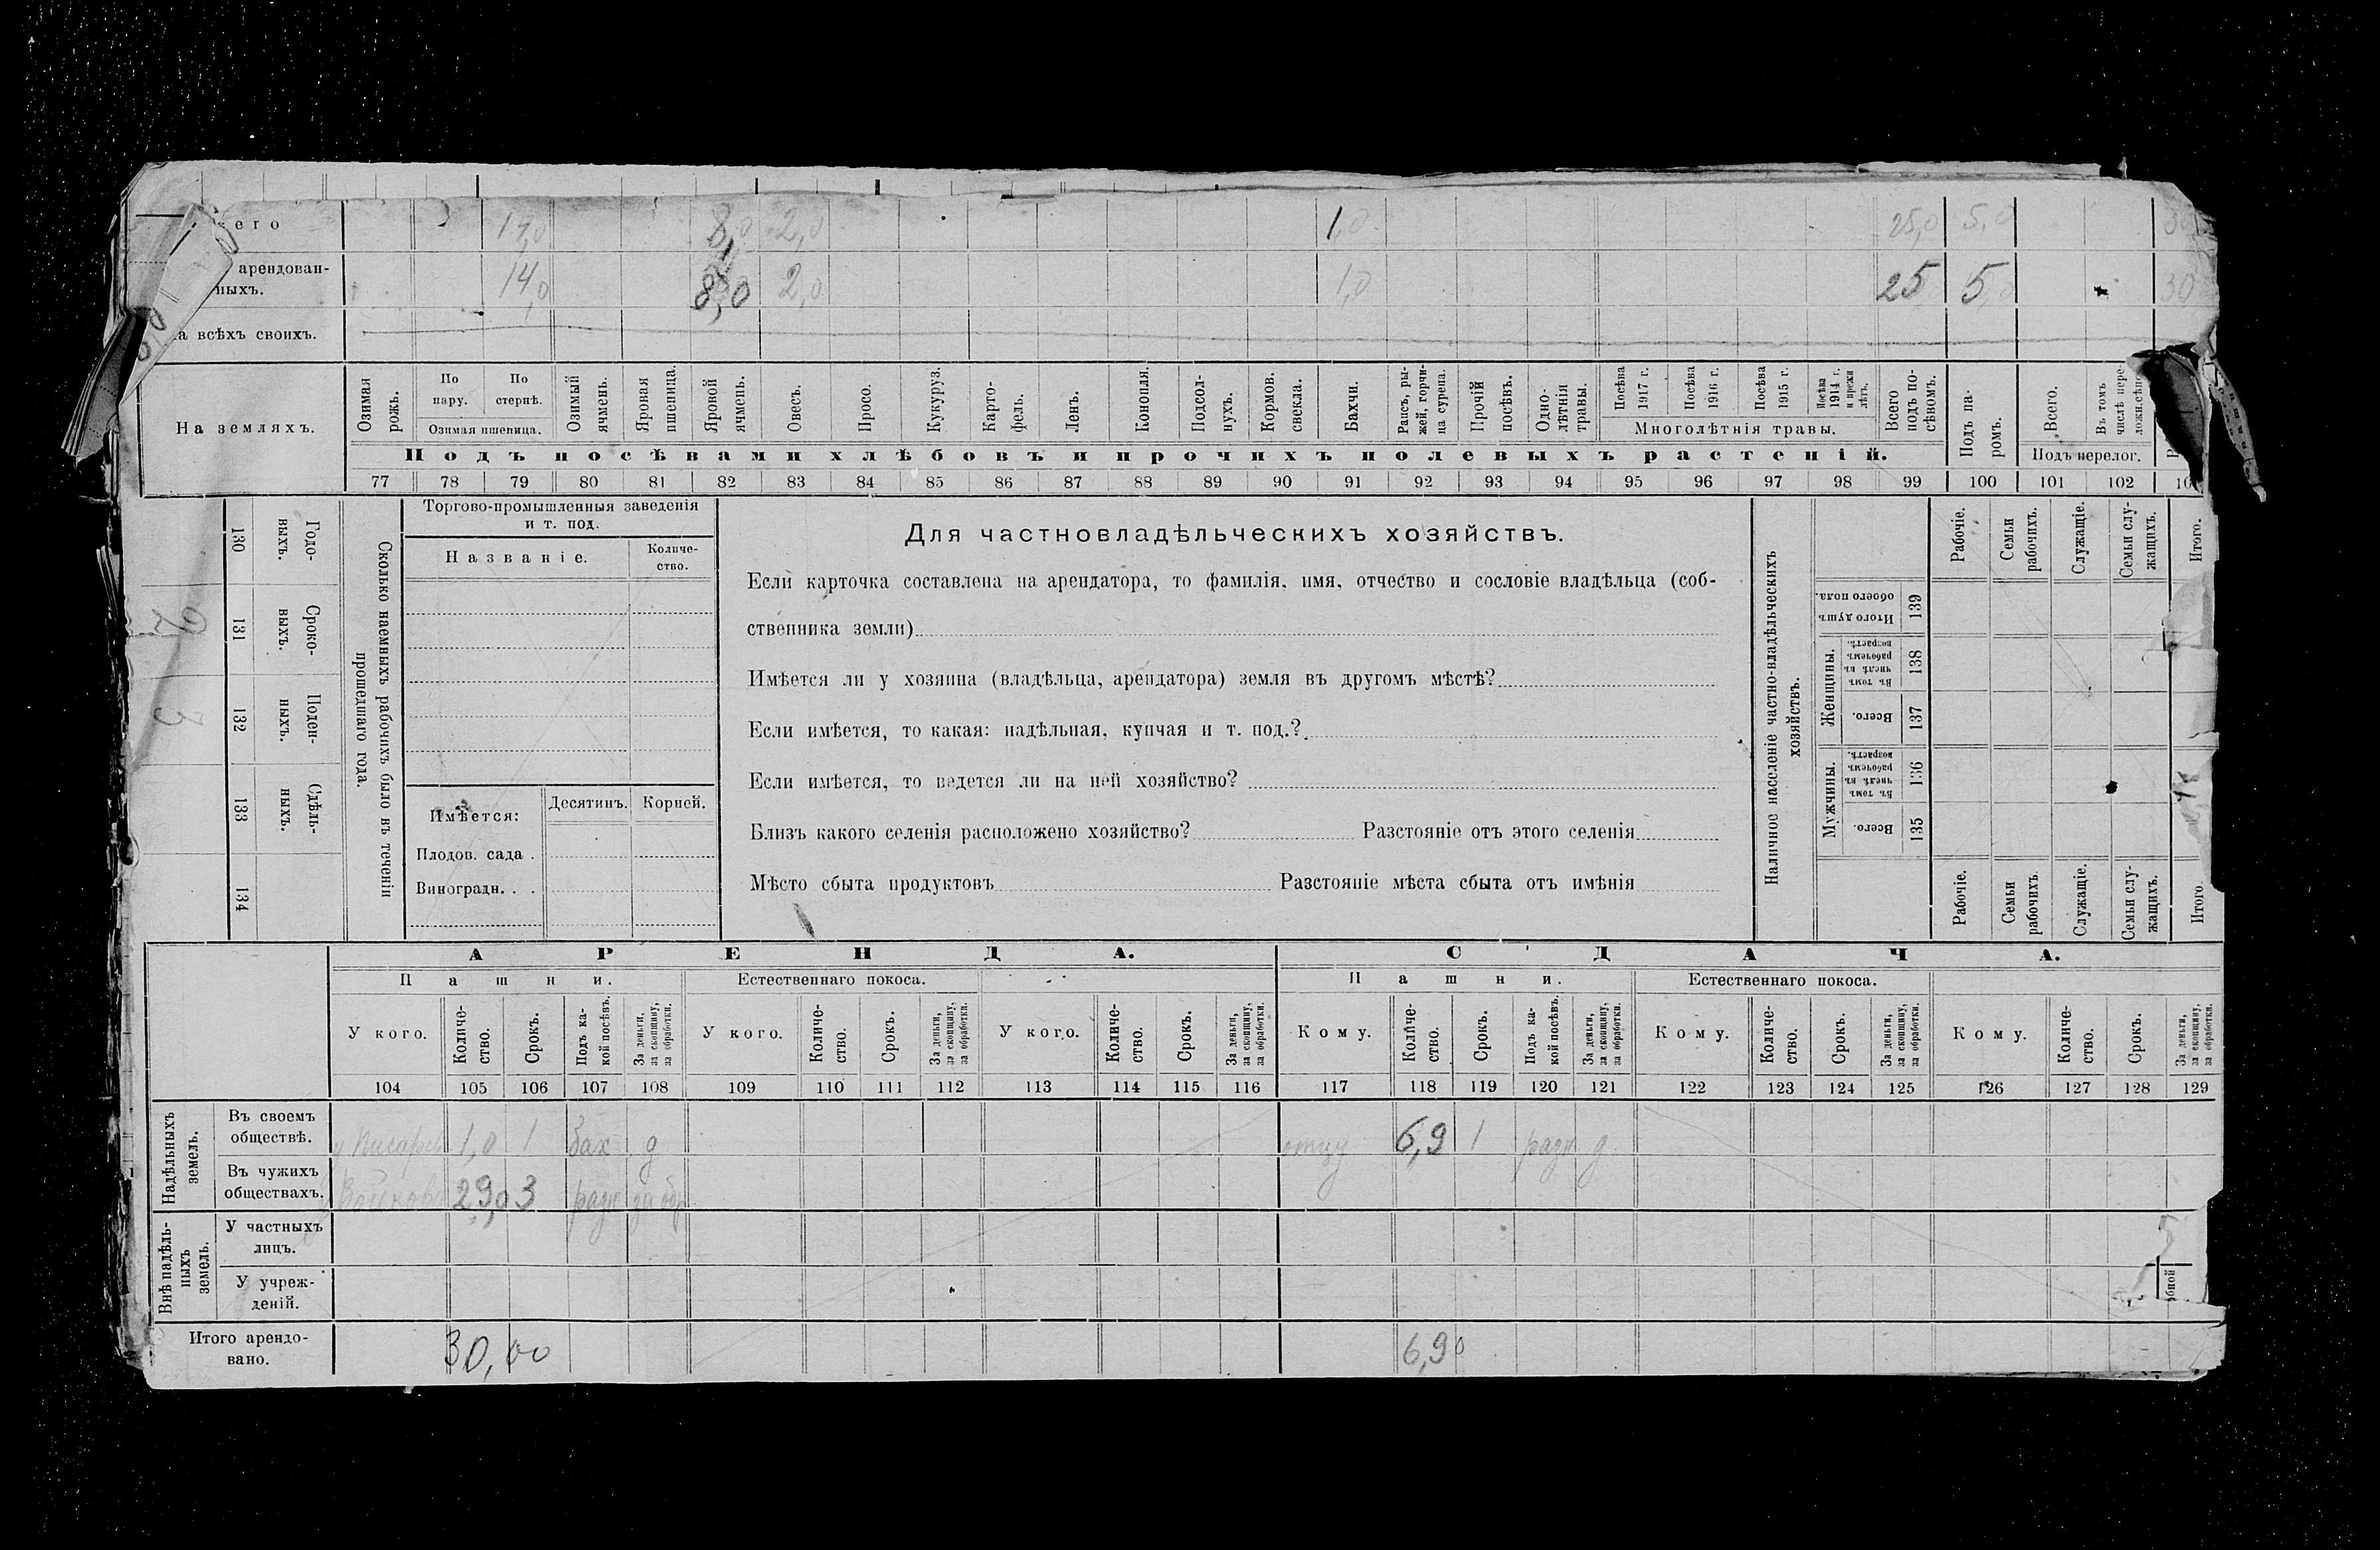 его 14,0 8,0 2,0 1,0 25,0 5,0
арендован-
ныхъ. 14,0 8,0 2,0 1,0 25 5,0 30
а всѣхъ своихъ.
На земляхъ.
Озимая рожь.
По пару.
По стернѣ.
Озимая пшеница.
Озимый ячмень.
Яровая пшеница.
Яровой ячмень.
Овесъ.
Просо.
Кукуруз.
Карто-
фель.
Ленъ.
Конопля.
Подсол-
нухъ.
Кормов. свекла.
Бахчи.
Рапсъ, ры-
жей, горчи-
ца сурепа.
Прочій посѣвъ.
Одно-
лѣтнія травы.
Посѣва 1917 г.
Посѣва 1916 г.
Посѣва 1915 г.
Посѣва 1914 г. и прежн лѣтъ.
Многолѣтнія травы.
Всего подъ по-
сѣвомъ.
Подъ па-
ромъ.
Всего.
Въ томъ числѣ пере-
Подъ перелог.
Подъ посѣвами хлѣбовъ и прочихъ полевыхъ растеній.
77 78 79 80 81 82 83 84 85 86 87 88 89 90 91 92 93 94 95 96 97 98 99 100 101 102
130 Годо-
ныхъ.
131 Сроко-
выхъ.
132 Поден-
ныхъ.
133 Сдѣль-
ныхъ.
134
Сколько наемныхъ рабочихъ было въ теченіи
прошедшаго года.
Торгово-промышленныя заведенія
и т. под.
Названіе.
Количе-
ство.
Имѣется: Десятинъ. Корней.
Плодов. сада .
Виноградн. . .
Для частновладѣльческихъ хозяйствъ.
Если карточка составлена на арендатора, то фамилія, имя, отчество и сословіе владѣльца (соб-
ственника земли)
Имѣется ли у хозяина (владѣльца, арендатора) земля въ другомъ мѣстѣ?
Если имѣется, то какая: надѣльная, купчая и т. под.?
Если имѣется, то ведется ли на ней хозяйство?
Близъ какого селенія расположено хозяйство? Разстояніе отъ этого селенія
Мѣсто сбыта продуктовъ Разстояніе мѣста сбыта отъ имѣнія
Наличное населеніе частно-владѣльческихъ
хозяйствъ.
Рабочіе.
Семьи рабочихъ.
Служащіе.
Семьи слу-
жащихъ.
Итого.
Итого душъ обоего пола. 139
Женщины.
Въ томъ числѣ въ рабочемъ возрастѣ. 138
Всего. 137
Мужчины.
Въ томъ числѣ въ рабочемъ возрастѣ. 136
Всего. 135
Рабочіе.
Семьи рабочихъ.
Служащіе.
Семьи слу-
жащихъ.
Итого.
АРЕНДА. СДАЧА.
Пашни. Естественнаго покоса. Пашни. Естественнаго покоса.
У кого.
Количе-
ство.
Срокъ.
Подъ ка-
кой посѣвъ.
За деньги, за скопщину, за обработки.
У кого.
Количе-
ство.
Срокъ.
За деньги, за скопщину, за обработки.
У кого.
Количе-
ство.
Срокъ.
За деньги, за скопщину, за обработки.
Кому.
Количе-
ство.
Срокъ.
Подъ ка-
кой посѣвъ.
За деньги, за скопщину, за обработки.
Кому.
Количе-
ство.
Срокъ.
За деньги, за скопщину, за обработки.
Кому.
Количе-
ство.
Срокъ.
За деньги, за скопщину, за обработки.
104 105 106 107 108 109 110 111 112 113 114 115 116 117 118 119 120 121 122 123 124 125 126 127 128 129
Надѣльныхъ
земель.
Въ своемъ
обществѣ. 1,0 1 бах д отцу 6,9 1 разн д
Въ чужихъ
обществахъ. 29,0 3 разн
Внѣ надѣль-
ныхъ
земель.
У частныхъ
лицъ.
У учреж-
деній.
Итого арендо-
вано. 30,00 6,90